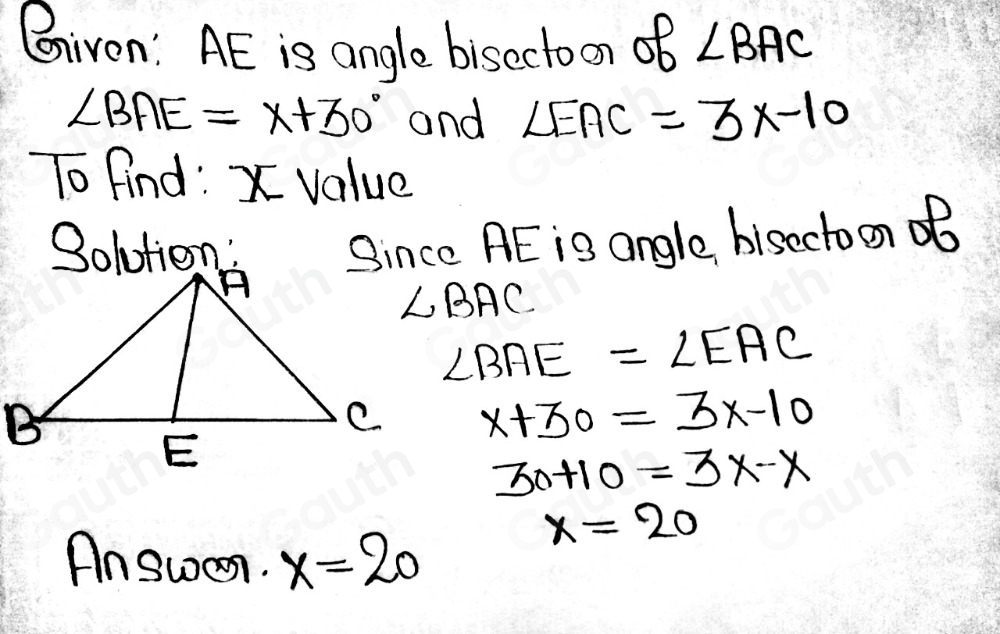 Given: AE is angle bisector of ∠BAC
∠BAE = x+30° and ∠EAC = 3x-10
To find: x value
Solution:
Since AE is angle bisector of
∠BAC
A
B
E
C
∠BAE = ∠EAC
x+30 = 3x-10
30+10 = 3x-x
x = 20
Answer. x = 20
Gauth